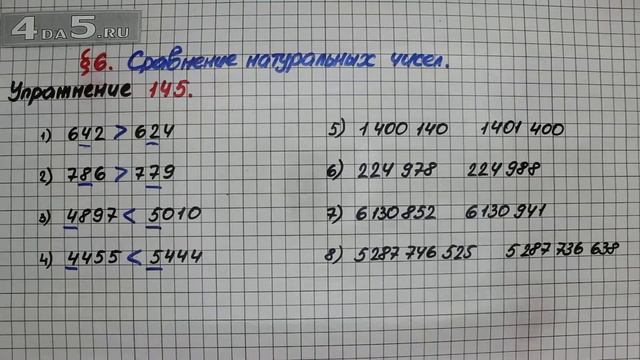 4DA5.RU
§6. Сравнение натуральных чисел.
Упражнение 145.
1) 642 > 624
2) 786 > 779
3) 4897 < 5010
4) 4455 < 5444
5) 1 400 140 1 401 400
6) 224 978 224 988
7) 6 130 852 6 130 941
8) 5 287 746 525 5 287 736 638